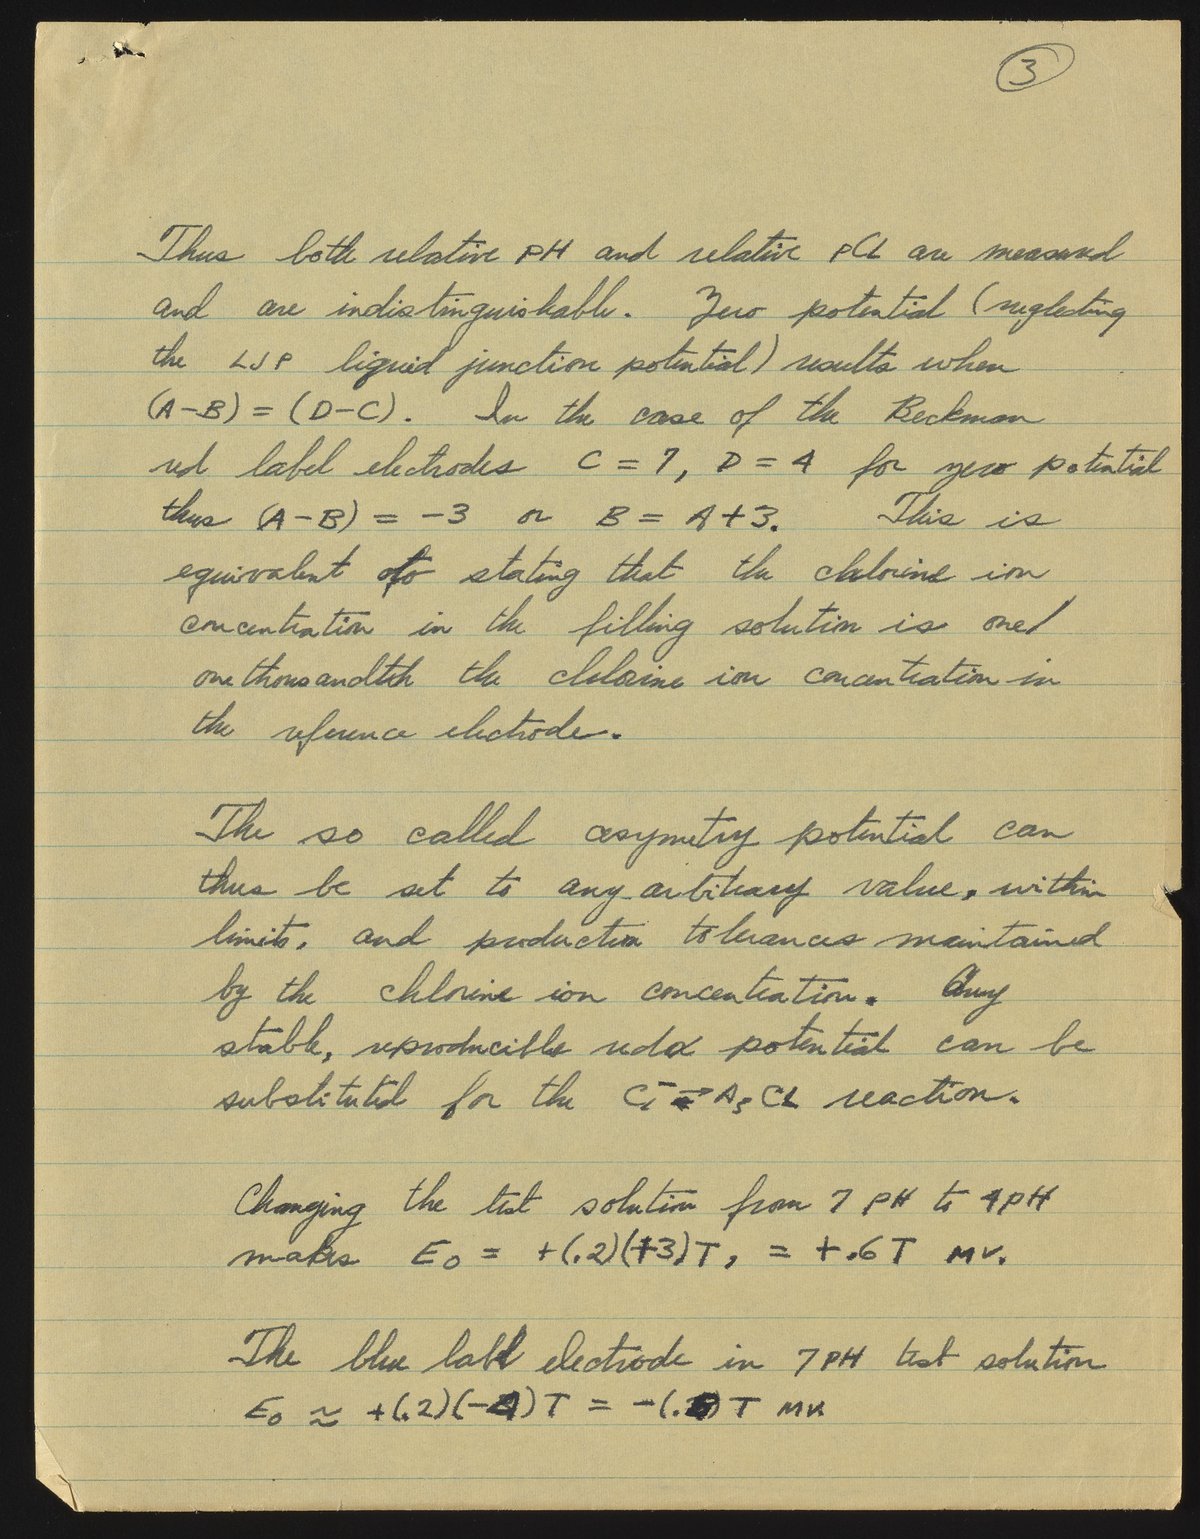 3
Thus both relative PH and relative pCL are measured
and are indistinguishable. Zero potential (neglecting
the LJP liquid junction potential) results when
(A-B) = (D-C). In the case of the Beckman
red label electrodes C = 7, D = 4 for zero potential
thus (A-B) = -3 or B = A+3. This is
equivalent to stating that the chlorine ion
concentration in the filling solution is one/
one thousandth the chlorine ion concentration in
the reference electrode.
The so called asymetry potential can
thus be set to any arbitrary value, within
limits, and production tolerances maintained
by the chlorine ion concentration. Any
stable, reproducible redox potential can be
substituted for the reaction.
Changing the test solution from 7 PH to 4 PH
makes E₀ = +(.2)(+3)T, = +.6T MV.
The blue label electrode in 7 PH test solution
E₀ ≈ +(.2)(- )T = -(. )T MV